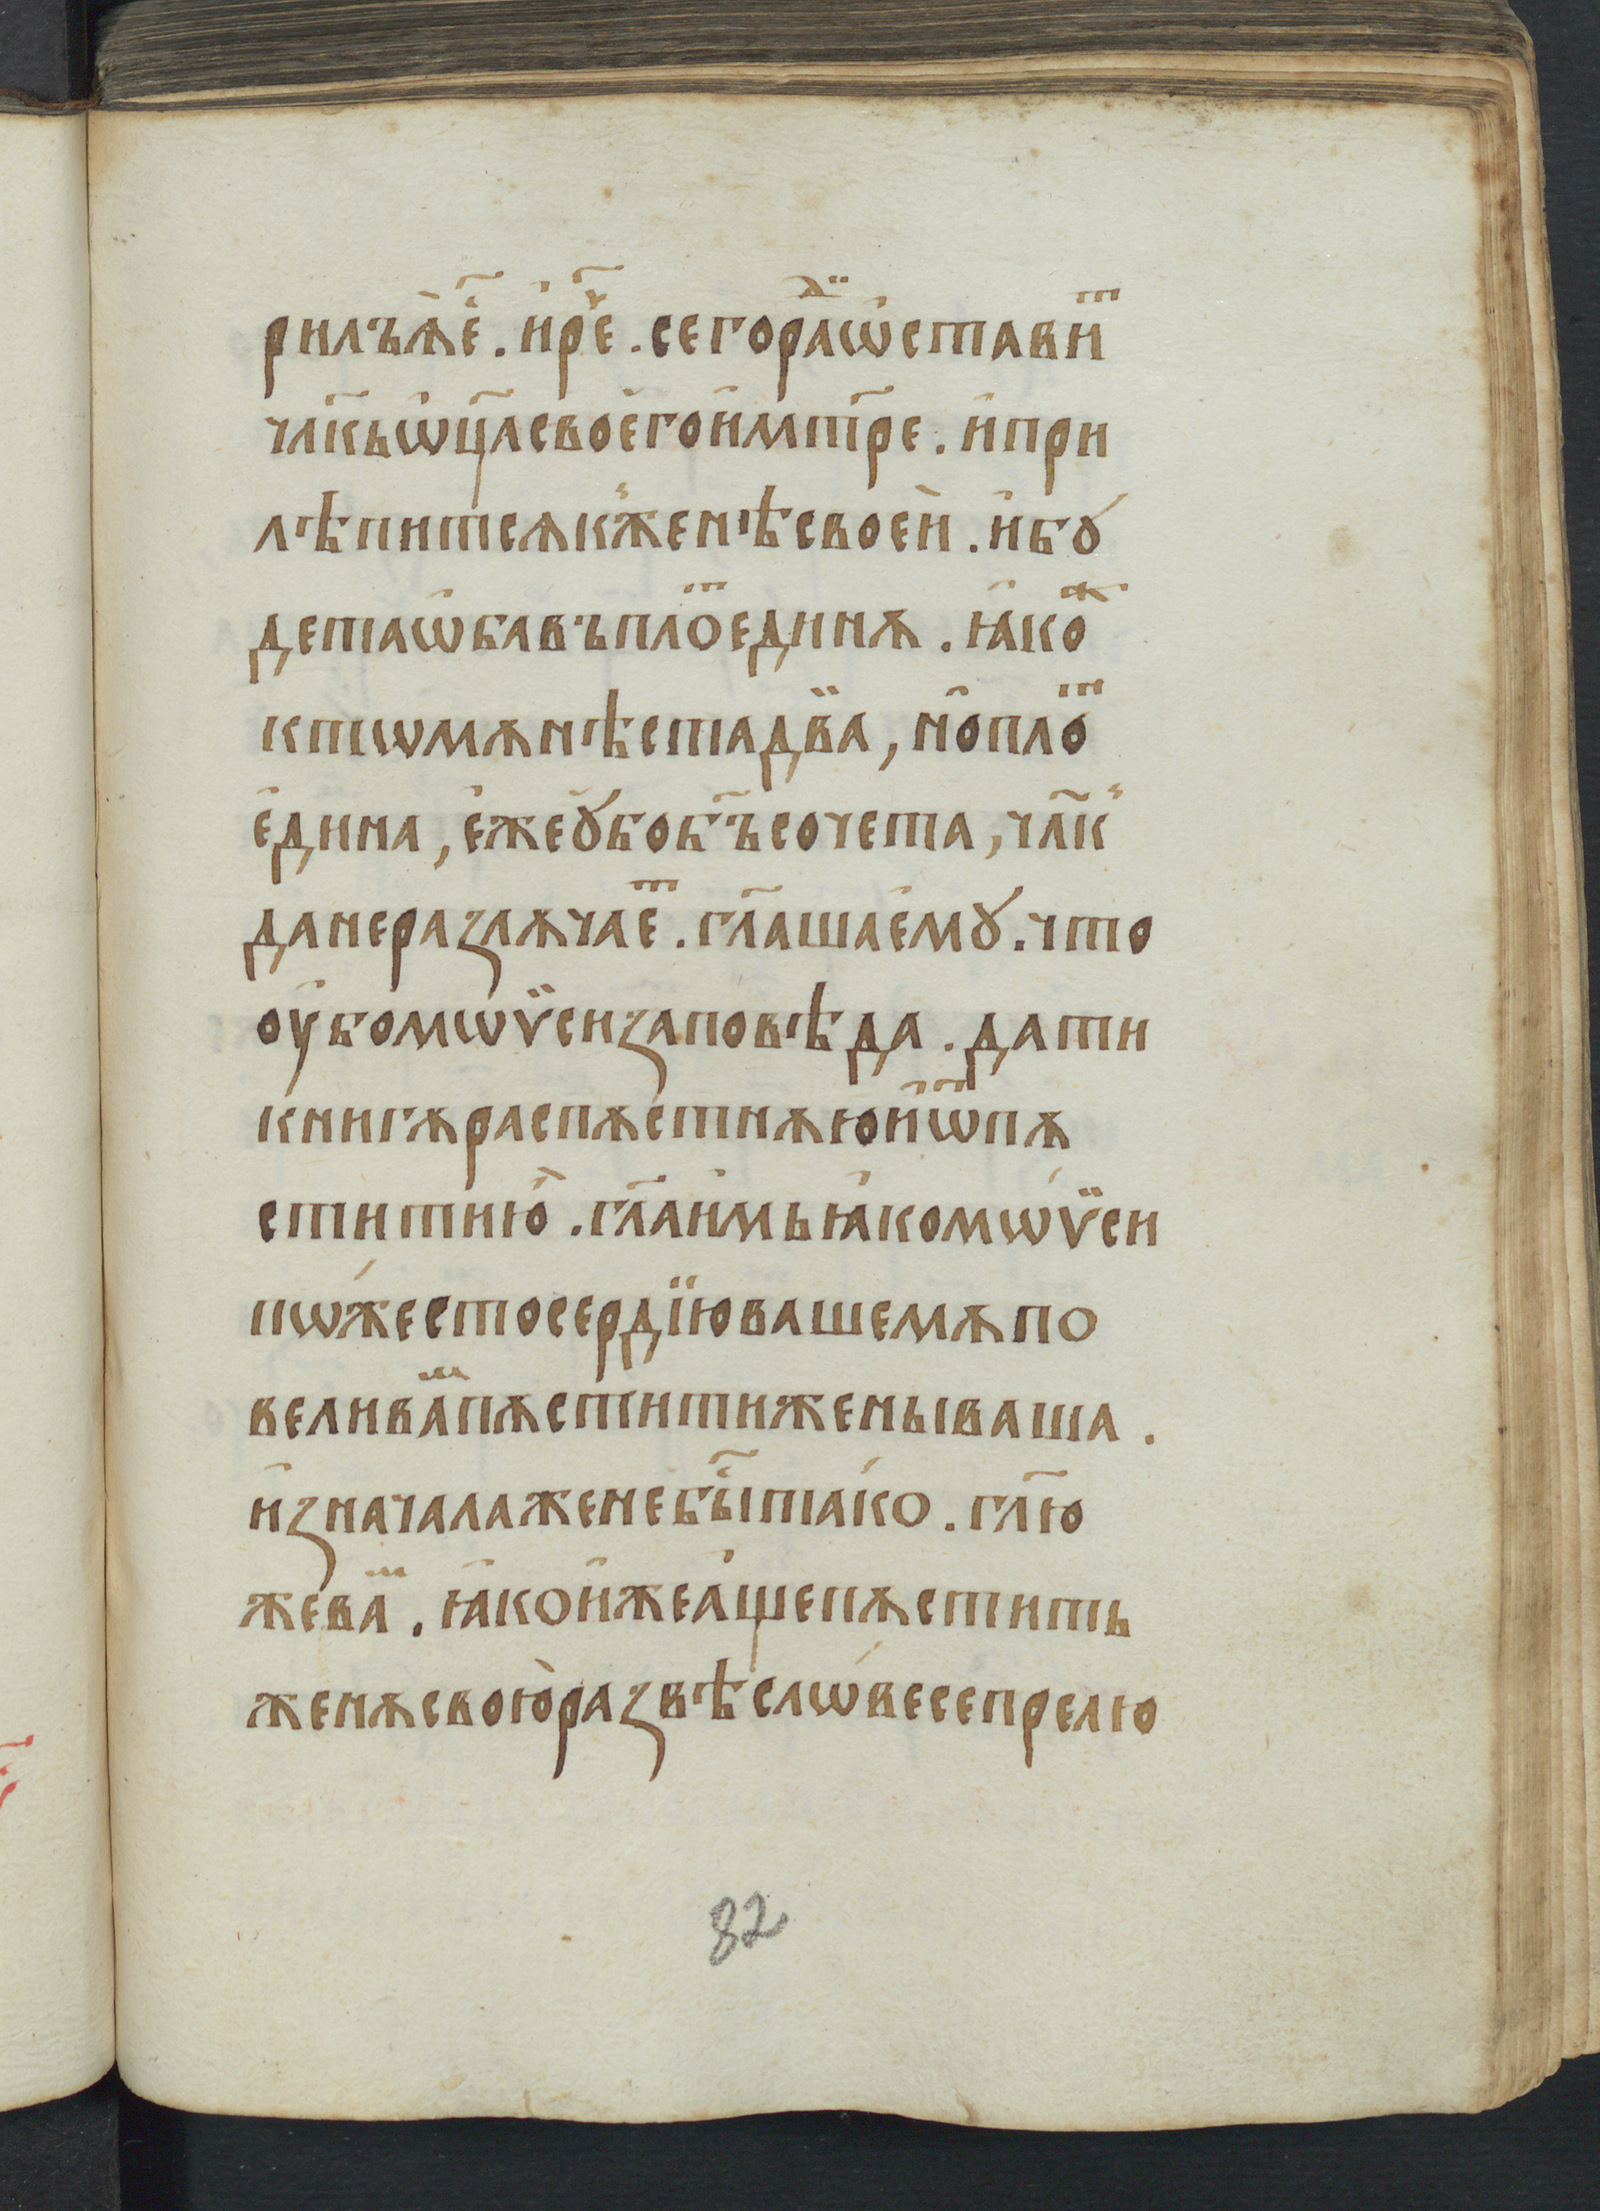 рилъѫ е҆҃. и҆ рч҃е. сего раⷣ ѡ҆ставиⷮ
чл҃кь ѡ҆ц҃а своего и҆ мт҃ре. и҆ при
лѣпитсѧ к женѣ своеи. и҆ бꙋ
дета ѡ҆ба въ плоⷮ единѫ. ꙗ҆коⷤ
к томѫ нѣста два, но плоⷮ
е҆дина, е҆же ꙋ҆бо бг҃ъ сочета, чл҃к
да не разлѫчаеⷮ. гл҃аша е҆мꙋ. что
оу҆бо мѡѵ̈си заповѣда. дати
книгѫ распѫстнѫю и҆ ѿпѫ
стити ю҆. гл҃а и҆мь ꙗ҆ко мѡѵ̈си
по жестосердїю вашемѫ по
вели ваⷨ пѫстити жены ваша.
и҆з начала же не бы҃ тако. гл҃ю
же ваⷨ. ꙗ҆ко и҆же а҆ще пѫстить
женѫ свою развѣ слѡвесе прелю
82